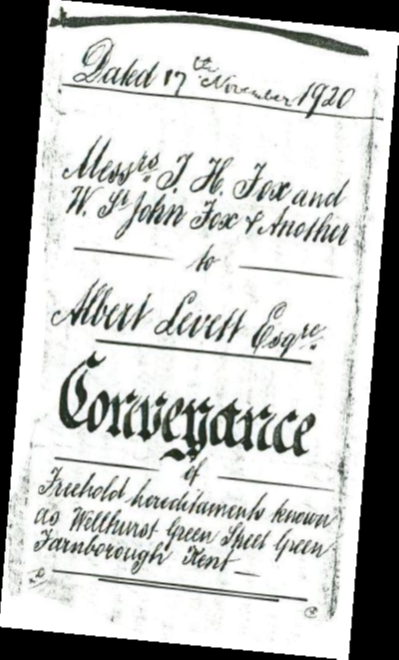 Dated 17th November 1920
Messrs. J. H. Fox and
W. St John Fox & Another
to
Albert Levett Esqre.
Conveyance
of
Freehold hereditaments known
as Wellhurst Green Street Green
Farnborough Kent